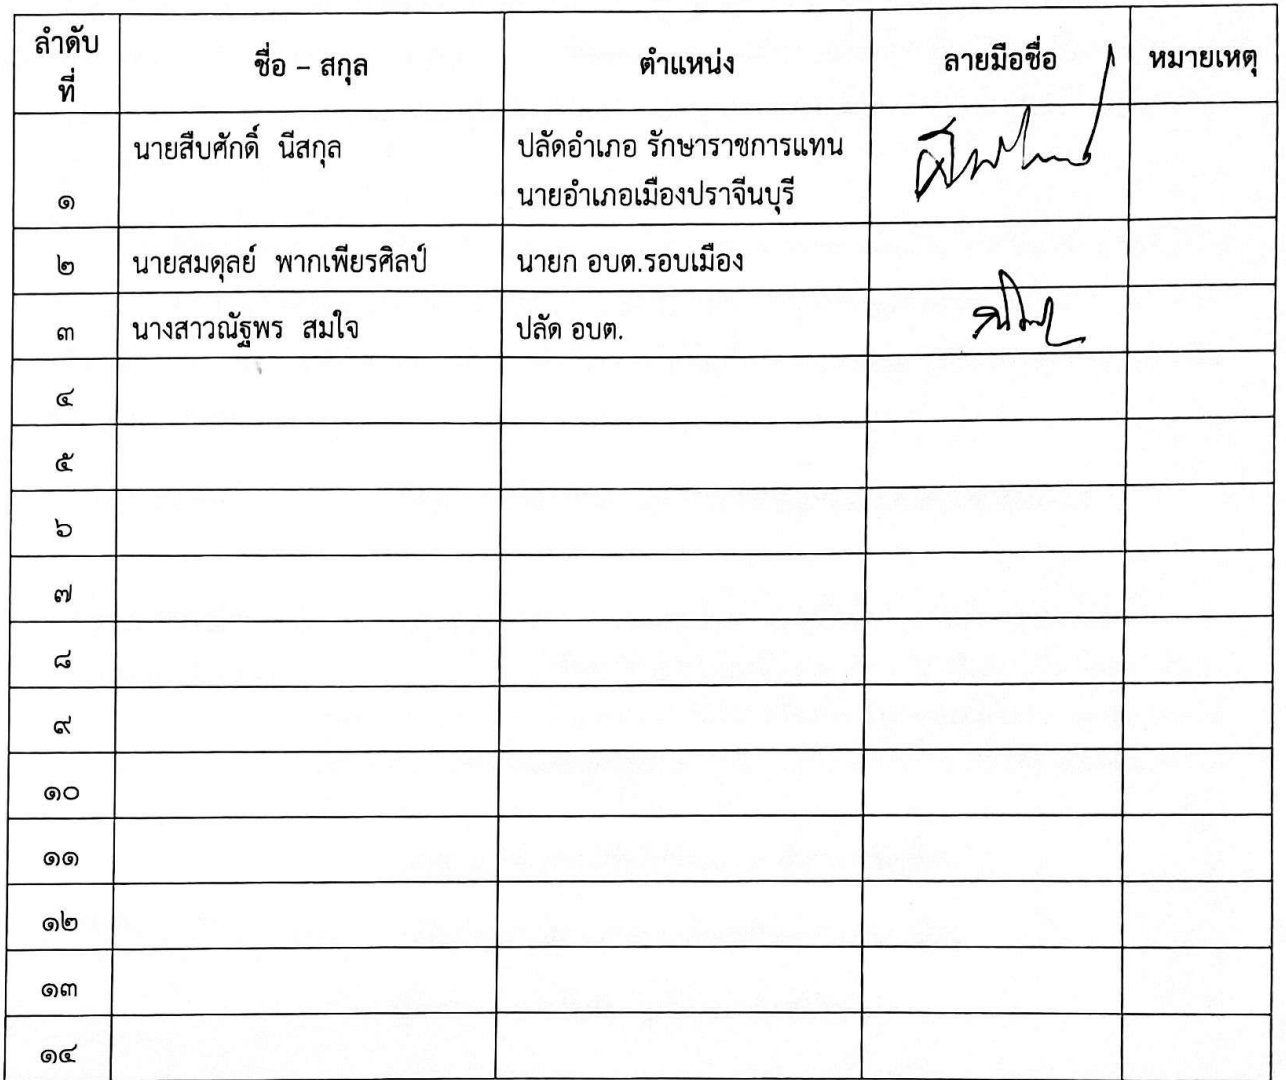 ลำดับ
ที่
ชื่อ – สกุล
ตำแหน่ง
ลายมือชื่อ
หมายเหตุ
นายสืบศักดิ์ นีสกุล
ปลัดอำเภอ รักษาราชการแทน
๑
นายอำเภอเมืองปราจีนบุรี
๒
นายสมดุลย์ พากเพียรศิลป์
นายก อบต.รอบเมือง
๓
นางสาวณัฐพร สมใจ
ปลัด อบต.
๔
๕
๖
๗
๘
๙
๑๐
๑๑
๑๒
๑๓
๑๔